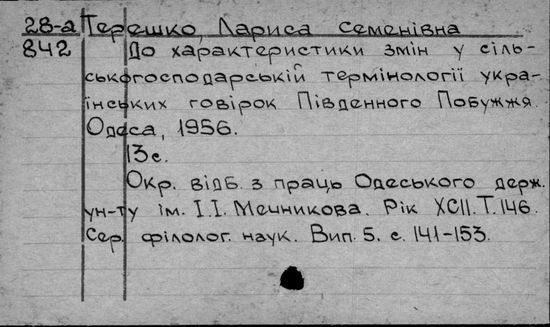 28-а Терешко, Лариса Семенівна
842 До характеристики змін у сіль-
ськогосподарській термінології укра-
їнських говірок Південного Побужжя.
Одеса, 1956.
13с.
Окр. відб. з праць Одеського держ.
ун-ту ім. І.І. Мечникова. Рік XCII. Т. 146.
Сер. філолог. наук. Вип. 5. с. 141-153.